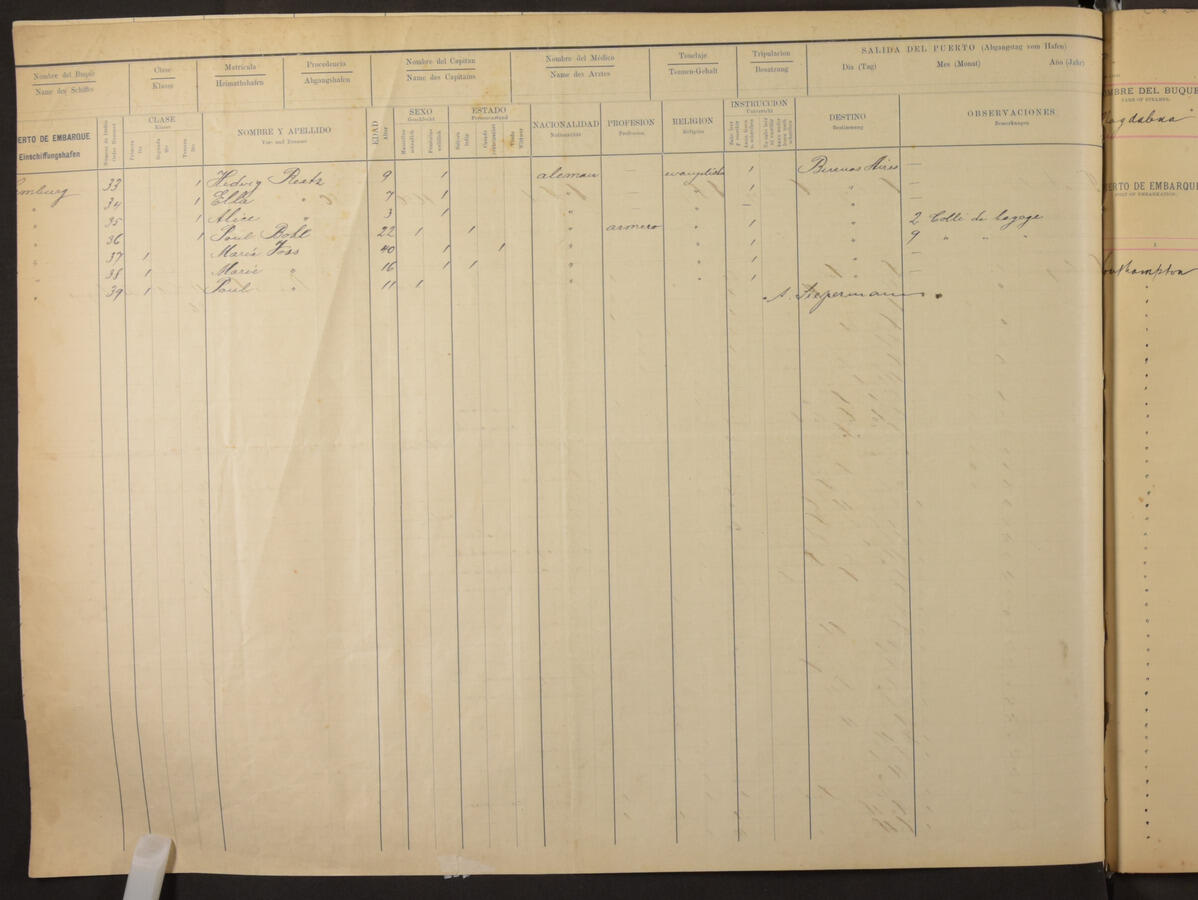 SALIDA DEL PUERTO (Abgangstag vom Hafen)
Día (Tag) Mes (Monat) Año (Jahr)
Nombre del Buque
Name des Schiffes
Clase
Klasse
Matrícula
Heimathshafen
Procedencia
Abgangshafen
Nombre del Capitan
Name des Capitäns
Nombre del Médico
Name des Arztes
Tonelaje
Tonnen-Gehalt
Tripulacion
Besatzung
ERTO DE EMBARQUE
Einschiffungshafen
CLASE
Klasse
NOMBRE Y APELLIDO
Vor- und Zuname
EDAD
Alter
SEXO
Geschlecht
ESTADO
Personenstand
NACIONALIDAD
Nationalität
PROFESION
Profession
RELIGION
Religion
INSTRUCCION
Unterricht
DESTINO
Bestimmung
OBSERVACIONES
Bemerkungen
mburg 33 1 Hedwig 9 1 aleman — 1 Buenos Aires —
" 34 1 Ella " 7 1 " — " 1 " —
" 35 1 Alice " 3 1 " — " — " —
" 36 1 Paul Bohl 22 1 1 " armero " 1 " 2 Colli de bagage
" 37 1 Maria 40 1 1 " " 1 " 9 " " "
" 38 1 Marie " 16 1 1 " " 1 " —
" 39 1 Paul " 11 1 " " 1 " —
MBRE DEL BUQUE
NAME OF STEAMER.
agdalena
ERTO DE EMBARQUE
PORT OF EMBARKATION.
outhampton